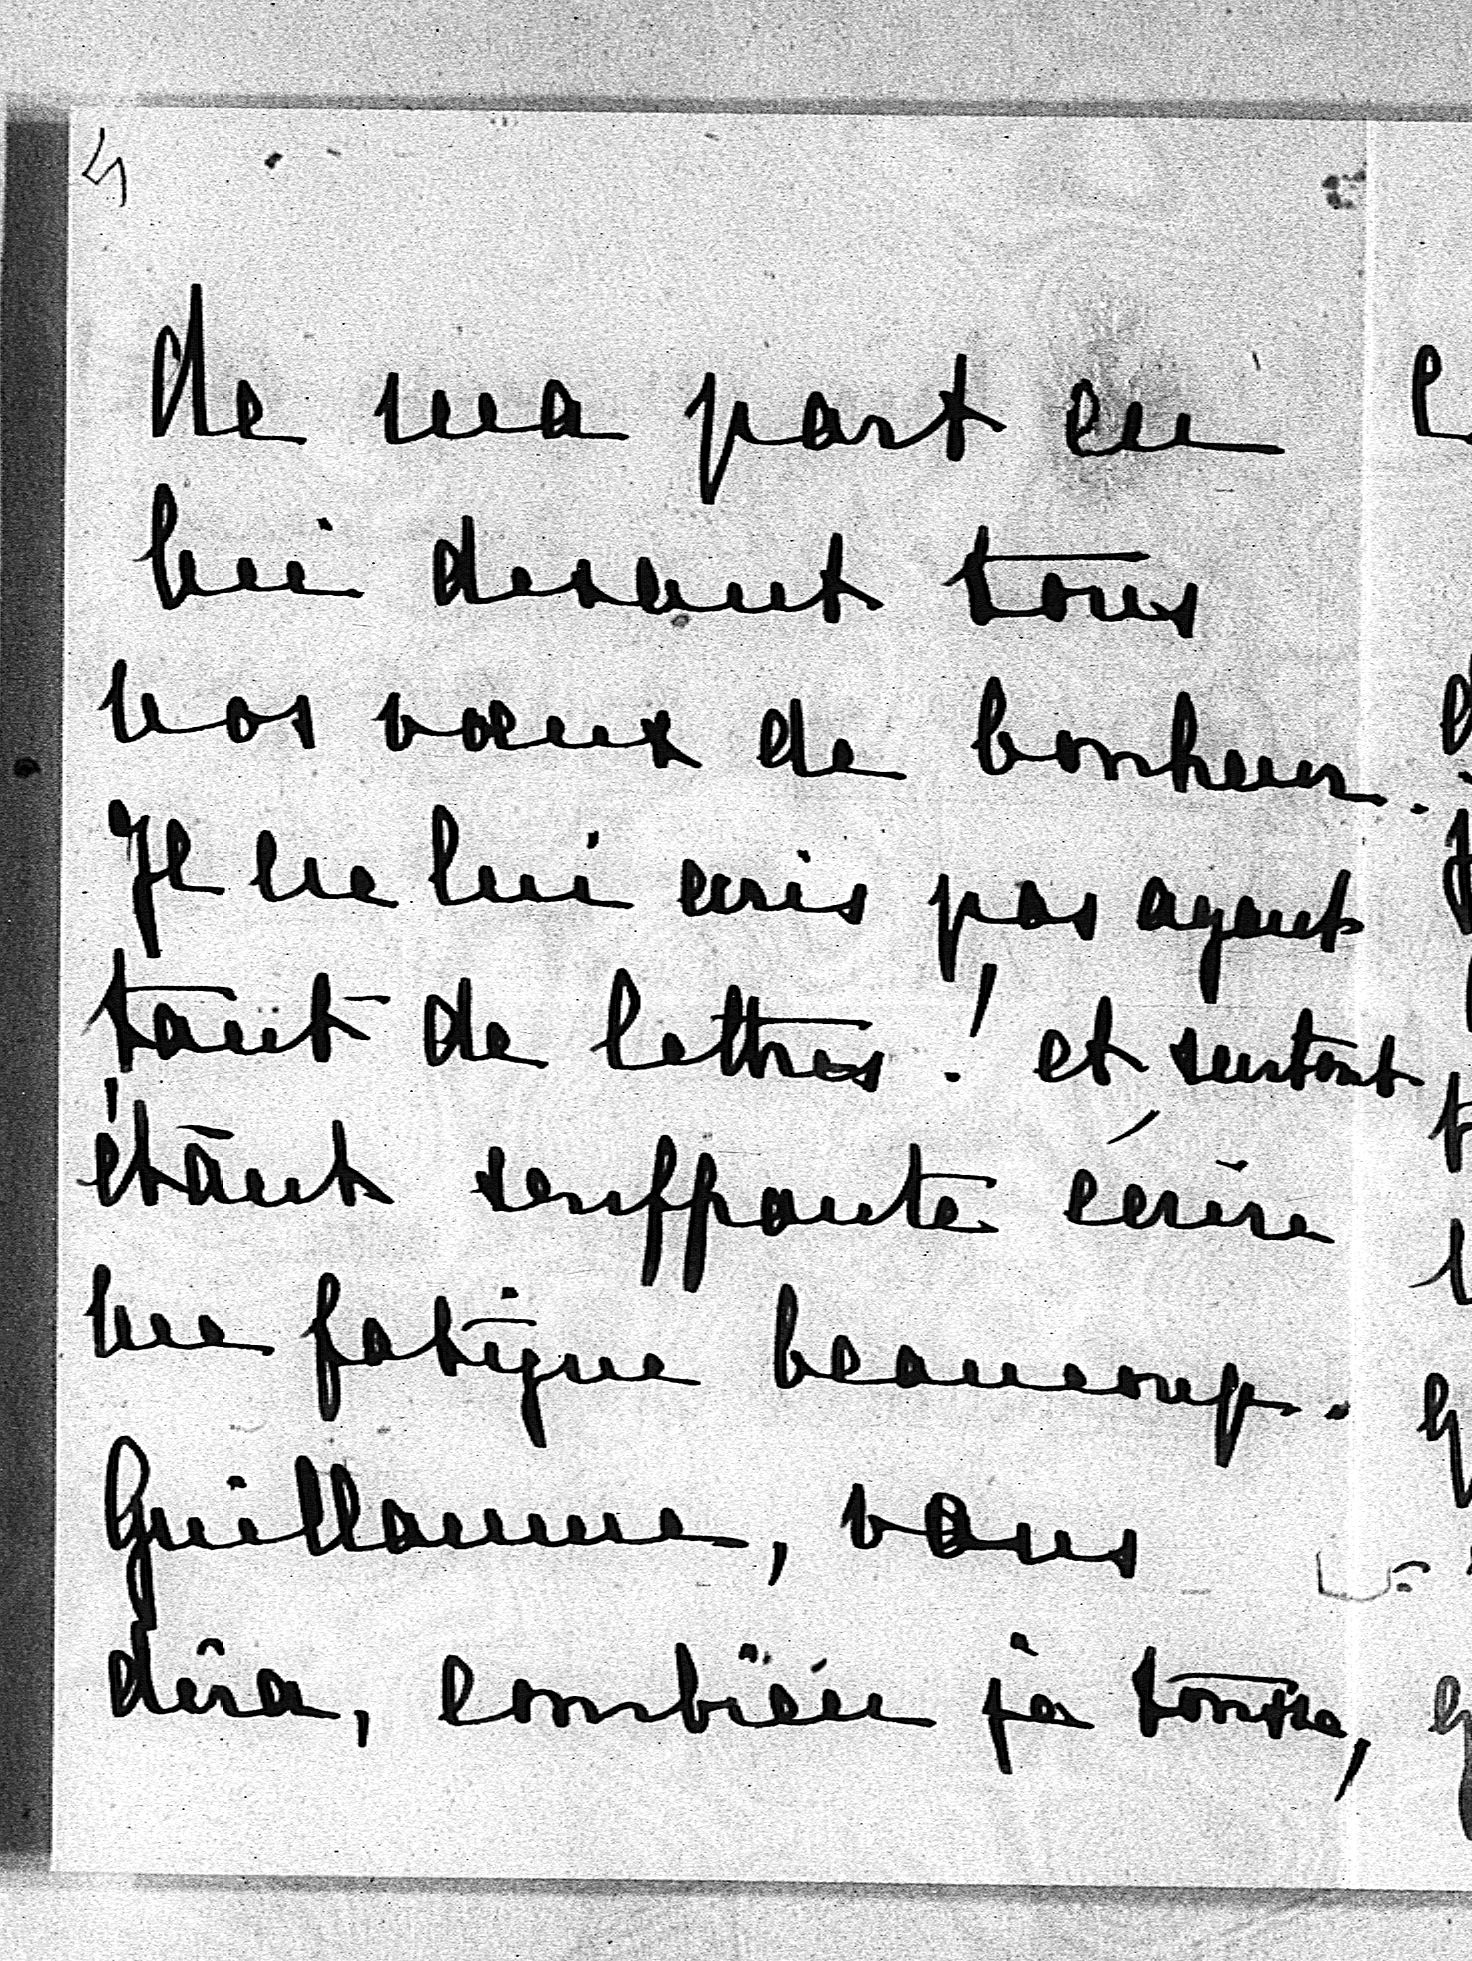 4
de ma part en
lui desant tous
nos vœux de bonheur.
Je ne lui ecris pas ayant
tant de lettres! et surtout
étant souffrante écrire
me fatigue beaucoup.
Guillaume, vous
dira, combien je tousse,